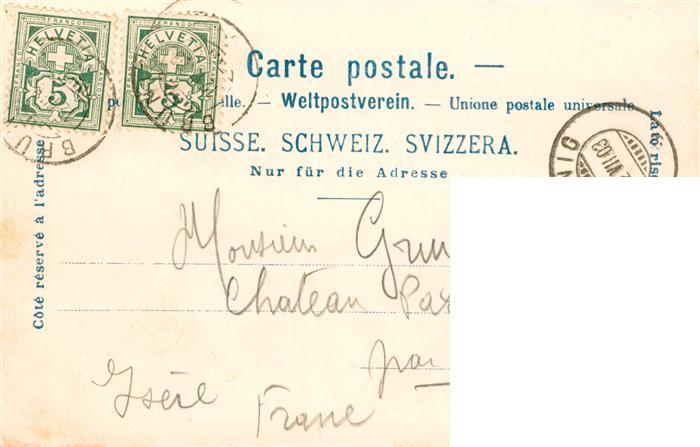 FRANCO FRANCO
HELVETIA HELVETIA
5 5
BRU
Carte postale. —
elle. — Weltpostverein. — Unione postale universale
SUISSE. SCHWEIZ. SVIZZERA.
Nur für die Adresse
Côté réservé à l'adresse
NIG
VII.03
Monsieur
Chateau
par
Isère
France